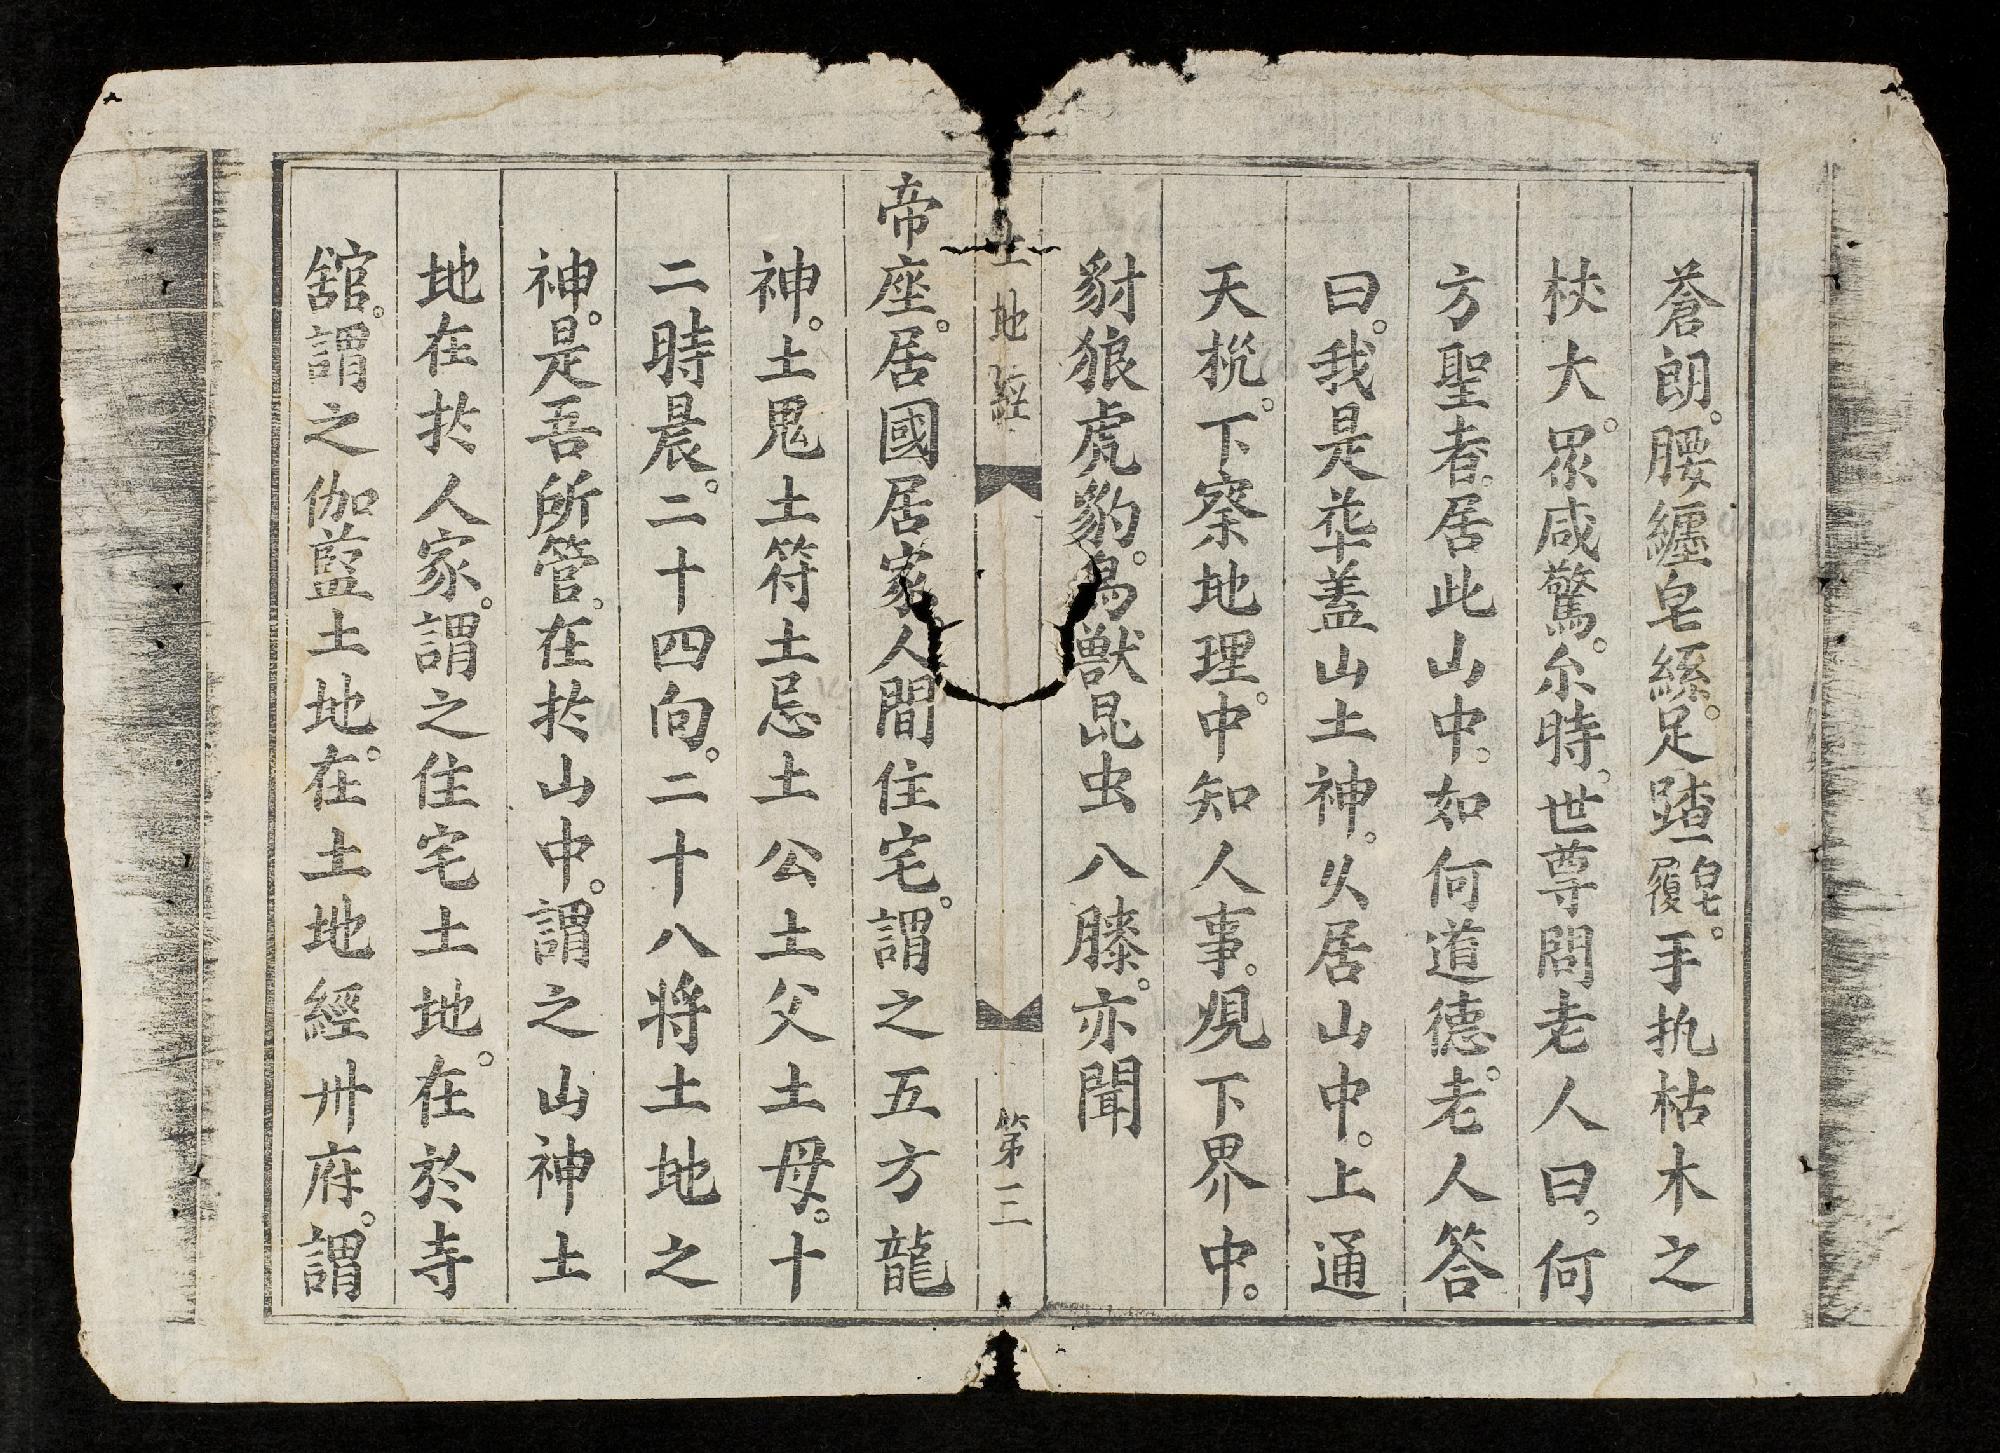 蒼朗。腰纏皂絲。足踏一皂履。手执枯木之
杖大。眾咸驚。尒時。世尊問老人曰。何
方聖者。居此山中。如何道德。老人答
曰。我是華蓋山土神。久居山中。上通
天。下察地理。中知人事。覌下界中。
豺狼虎豹。鳥獸昆虫八膝。亦聞
土地經 第三
帝座。居國居家人間住宅。謂之五方龍
神。土鬼土符土忌土公土父土母。十
二時晨。二十四向。二十八將土地之
神。是吾所管。在扵山中。謂之山神土
地在扵人家。謂之住宅土地。在於寺
舘。謂之伽藍土地。在土地經卅府。謂